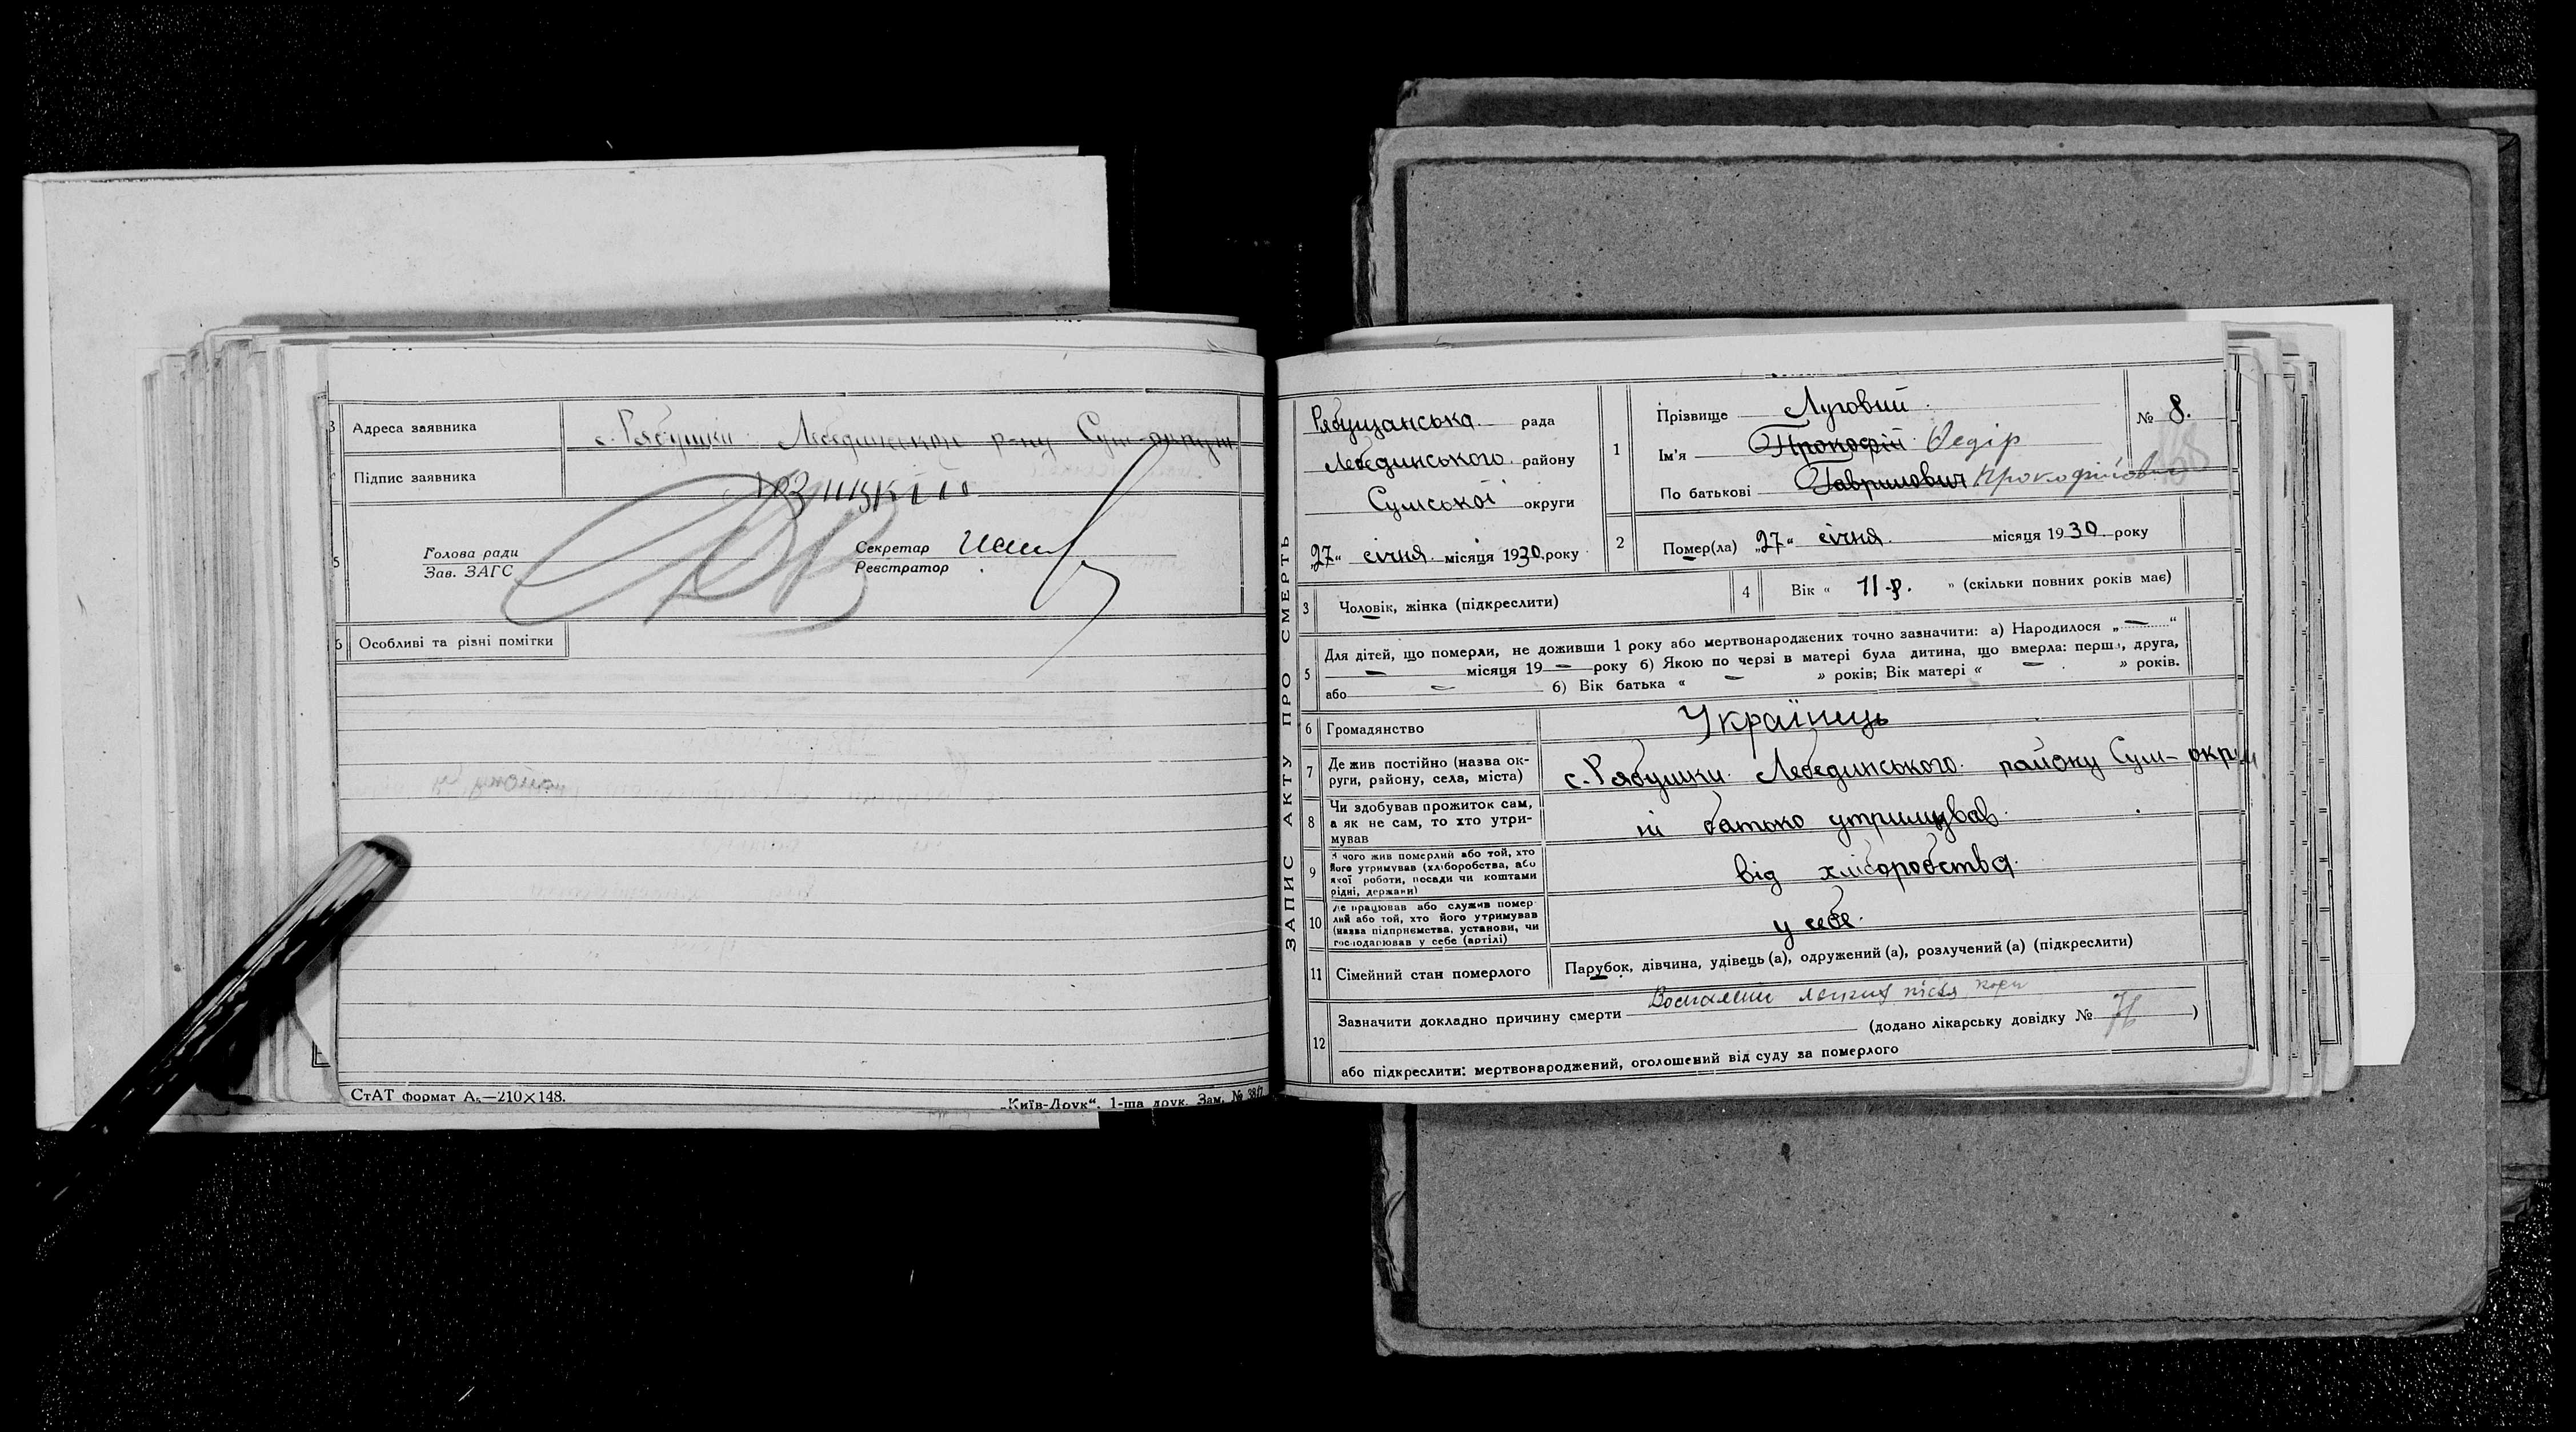 Адреса заявника
с. Рябушки Лебединськой р-ну Сум-округи
Підпис заявника
Голова ради
Зав. ЗАГС
Секретар
Реєстратор
Особливі та різні помітки
СтАТ формат А₅—210×148.
„Київ-Друк“, 1-ша друк. Зам. №
ЗАПИС АКТУ ПРО СМЕРТЬ
Рябущанська рада
Лебединського району
Сумської округи
„27“ січня місяця 1930 року
1
Прізвище Луговий
Ім'я Прокофій Федір
По батькові Гаврилович Прокофійович
№ 8.
2
Помер(ла) „27“ січня місяця 1930 року
3 Чоловік, жінка (підкреслити)
4 Вік « 11 р. » (скільки повних років має)
5
Для дітей, що померли, не доживши 1 року або мертвонароджених точно зазначити: а) Народилося „—“
— місяця 19 — року б) Якою по черзі в матері була дитина, що вмерла: перша, друга,
або — б) Вік батька « — » років; Вік матері « — » років.
6 Громадянство Українець
7 Де жив постійно (назва ок-
руги, району, села, міста)
с. Рябушки Лебединського району Сум- округи
8 Чи здобував прожиток сам,
а як не сам, то хто утри-
мував
ні батько утримував
9 З чого жив померлий або той, хто
його утримував (хліборобства, або
якої роботи, посади чи коштами
рідні, держави)
від хліборобства
10 Де працював або служив помер
лий або той, хто його утримував
(назва підприємства, установи, чи
господарював у себе (артілі)
у себе
11 Сімейний стан померлого
Парубок, дівчина, удівець (а), одружений (а), розлучений (а) (підкреслити)
12
Зазначити докладно причину смерти Воспаления легких після кори
(додано лікарську довідку № )
або підкреслити: мертвонароджений, оголошений від суду за померлого